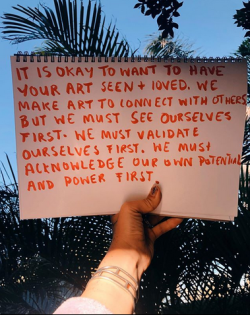 IT IS OKAY TO WANT TO HAVE
YOUR ART SEEN + LOVED. WE
MAKE ART TO CONNECT WITH OTHERS
BUT WE MUST SEE OURSELVES
FIRST. WE MUST VALIDATE
OURSELVES FIRST. WE MUST
ACKNOWLEDGE OUR OWN POTENTIAL
AND POWER FIRST.